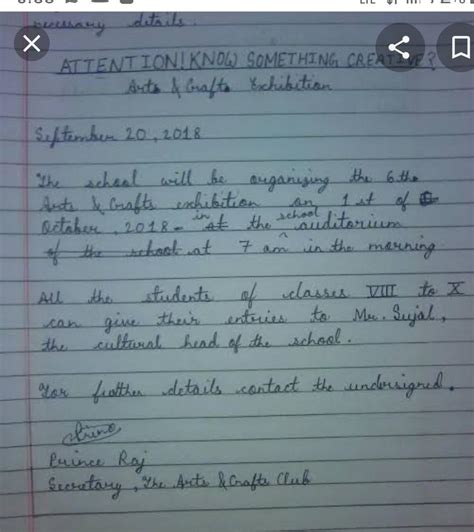 necessary details.
ATTENTION! KNOW SOMETHING CREATIVE?
Arts & Crafts Exhibition
September 20, 2018
The school will be organizing the 6 the
Arts & Crafts exhibition on 1 st of
October, 2018 - in the school auditorium
of the school at 7 am in the morning
All the students of classes VIII to X
can give their entries to Mr. Sujal,
the cultural head of the school.
For fruther details contact the undersigned.
Prince Raj
Secretary, The Arts & Crafts Club